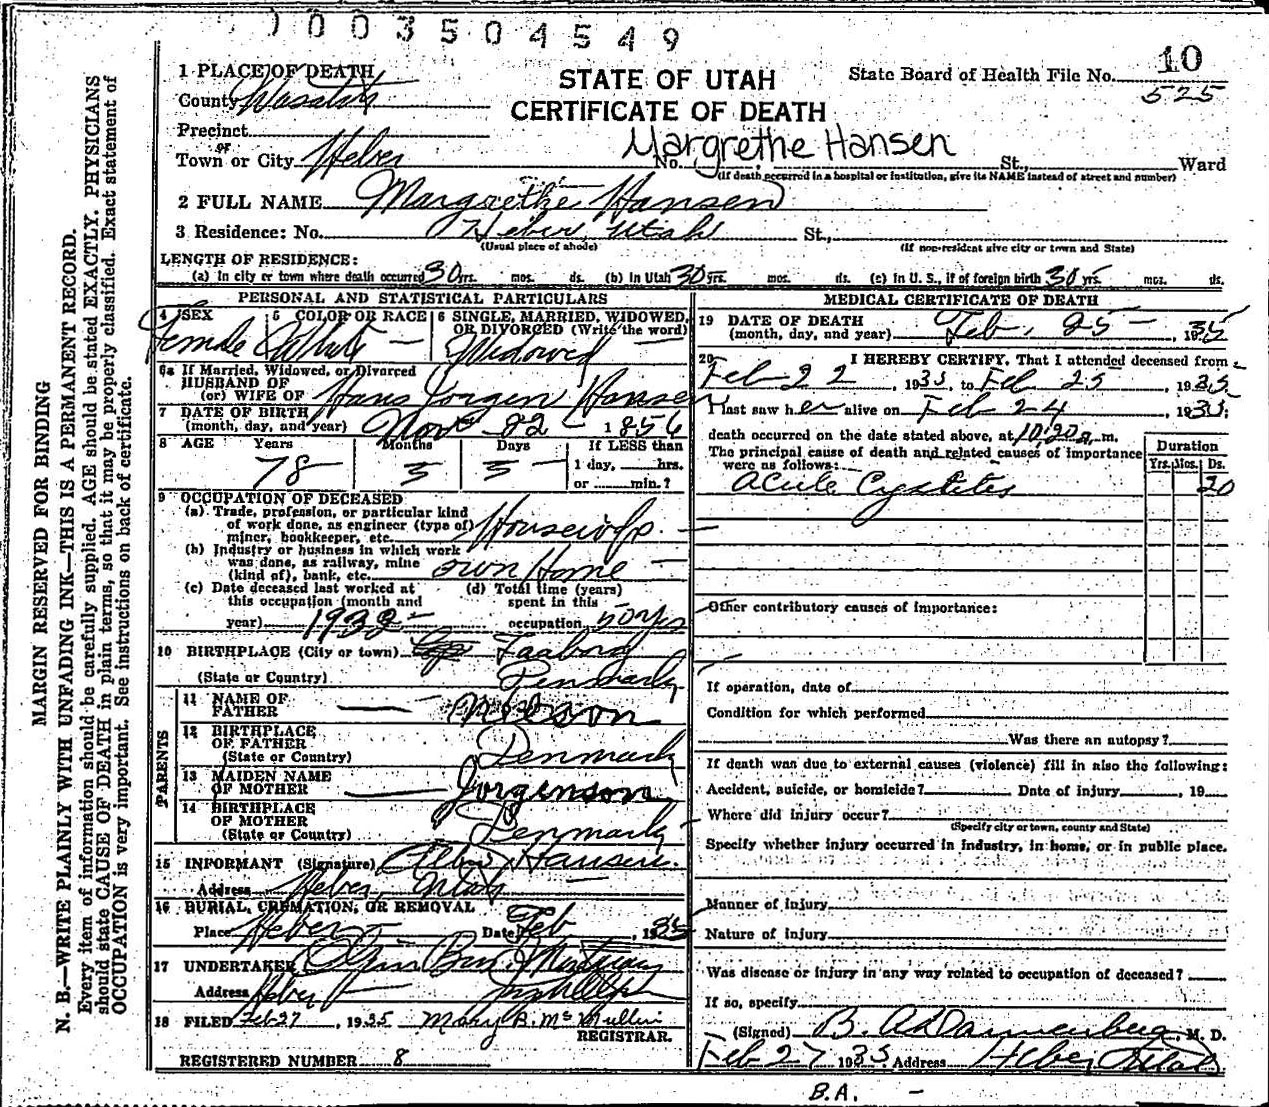 1003504549
10
525
STATE OF UTAH
CERTIFICATE OF DEATH
State Board of Health File No.
1 PLACE OF DEATH
County Wasatch
Precinct
or
Town or City Heber
Margrethe Hansen
No. St., Ward
(If death occurred in a hospital or institution, give its NAME instead of street and number)
2 FULL NAME Margrethe Hansen
3 Residence: No. Heber, Utah St.,
(Usual place of abode) (If non-resident give city or town and State)
LENGTH OF RESIDENCE:
(a) In city or town where death occurred 30 yrs. mos. ds. (b) In Utah 30 yrs. mos. ds. (c) In U. S., if of foreign birth 30 yrs. mos. ds.
PERSONAL AND STATISTICAL PARTICULARS
4 SEX 5 COLOR OR RACE 6 SINGLE, MARRIED, WIDOWED, OR DIVORCED (Write the word)
Female White - Widowed
6a If Married, Widowed, or Divorced
HUSBAND OF
(or) WIFE OF Hans Jorgen Hansen
7 DATE OF BIRTH
(month, day, and year) Nov - 22 - 1856
8 AGE Years Months Days If LESS than
78 3 3 1 day, hrs.
or min.?
9 OCCUPATION OF DECEASED
(a) Trade, profession, or particular kind
of work done, as engineer (type of)
miner, bookkeeper, etc. Housewife
(b) Industry or business in which work
was done, as railway, mine
(kind of), bank, etc. own Home
(c) Date deceased last worked at
this occupation (month and
year)
(d) Total time (years)
spent in this
occupation 50 yrs
10 BIRTHPLACE (City or town) Faaborg
(State or Country) Denmark
PARENTS
11 NAME OF
FATHER Nielson
12 BIRTHPLACE
OF FATHER
(State or Country) Denmark
13 MAIDEN NAME
OF MOTHER Jorgenson
14 BIRTHPLACE
OF MOTHER
(State or Country) Denmark
15 INFORMANT (Signature) Hansen
Address Heber, Utah
16 BURIAL, CREMATION, OR REMOVAL
Place Heber Date Feb , 1935
17 UNDERTAKER Olpin Bros. Mortuary
Address Heber
18 FILED Feb 27, 1935 Mary B. McMullin
REGISTRAR.
REGISTERED NUMBER 8
MEDICAL CERTIFICATE OF DEATH
19 DATE OF DEATH
(month, day, and year) Feb. 25 - 1935
20 I HEREBY CERTIFY, That I attended deceased from
Feb 22, 1935, to Feb 25, 1935
I last saw her alive on Feb 24, 1935;
death occurred on the date stated above, at 10:20 a.m.
The principal cause of death and related causes of importance
were as follows:
Duration
Yrs. Mos. Ds.
Acute Cystitis 20
Other contributory causes of importance:
If operation, date of
Condition for which performed
Was there an autopsy?
If death was due to external causes (violence) fill in also the following:
Accident, suicide, or homicide? Date of injury , 19
Where did injury occur?
(Specify city or town, county and State)
Specify whether injury occurred in industry, in home, or in public place.
Manner of injury
Nature of injury
Was disease or injury in any way related to occupation of deceased?
If so, specify
(Signed) Dannenberg, M. D.
Feb 27 1935 Address Heber Utah
B.A. -
MARGIN RESERVED FOR BINDING
N. B.—WRITE PLAINLY WITH UNFADING INK—THIS IS A PERMANENT RECORD.
Every item of information should be carefully supplied. AGE should be stated EXACTLY. PHYSICIANS
should state CAUSE OF DEATH in plain terms, so that it may be properly classified. Exact statement of
OCCUPATION is very important. See instructions on back of certificate.